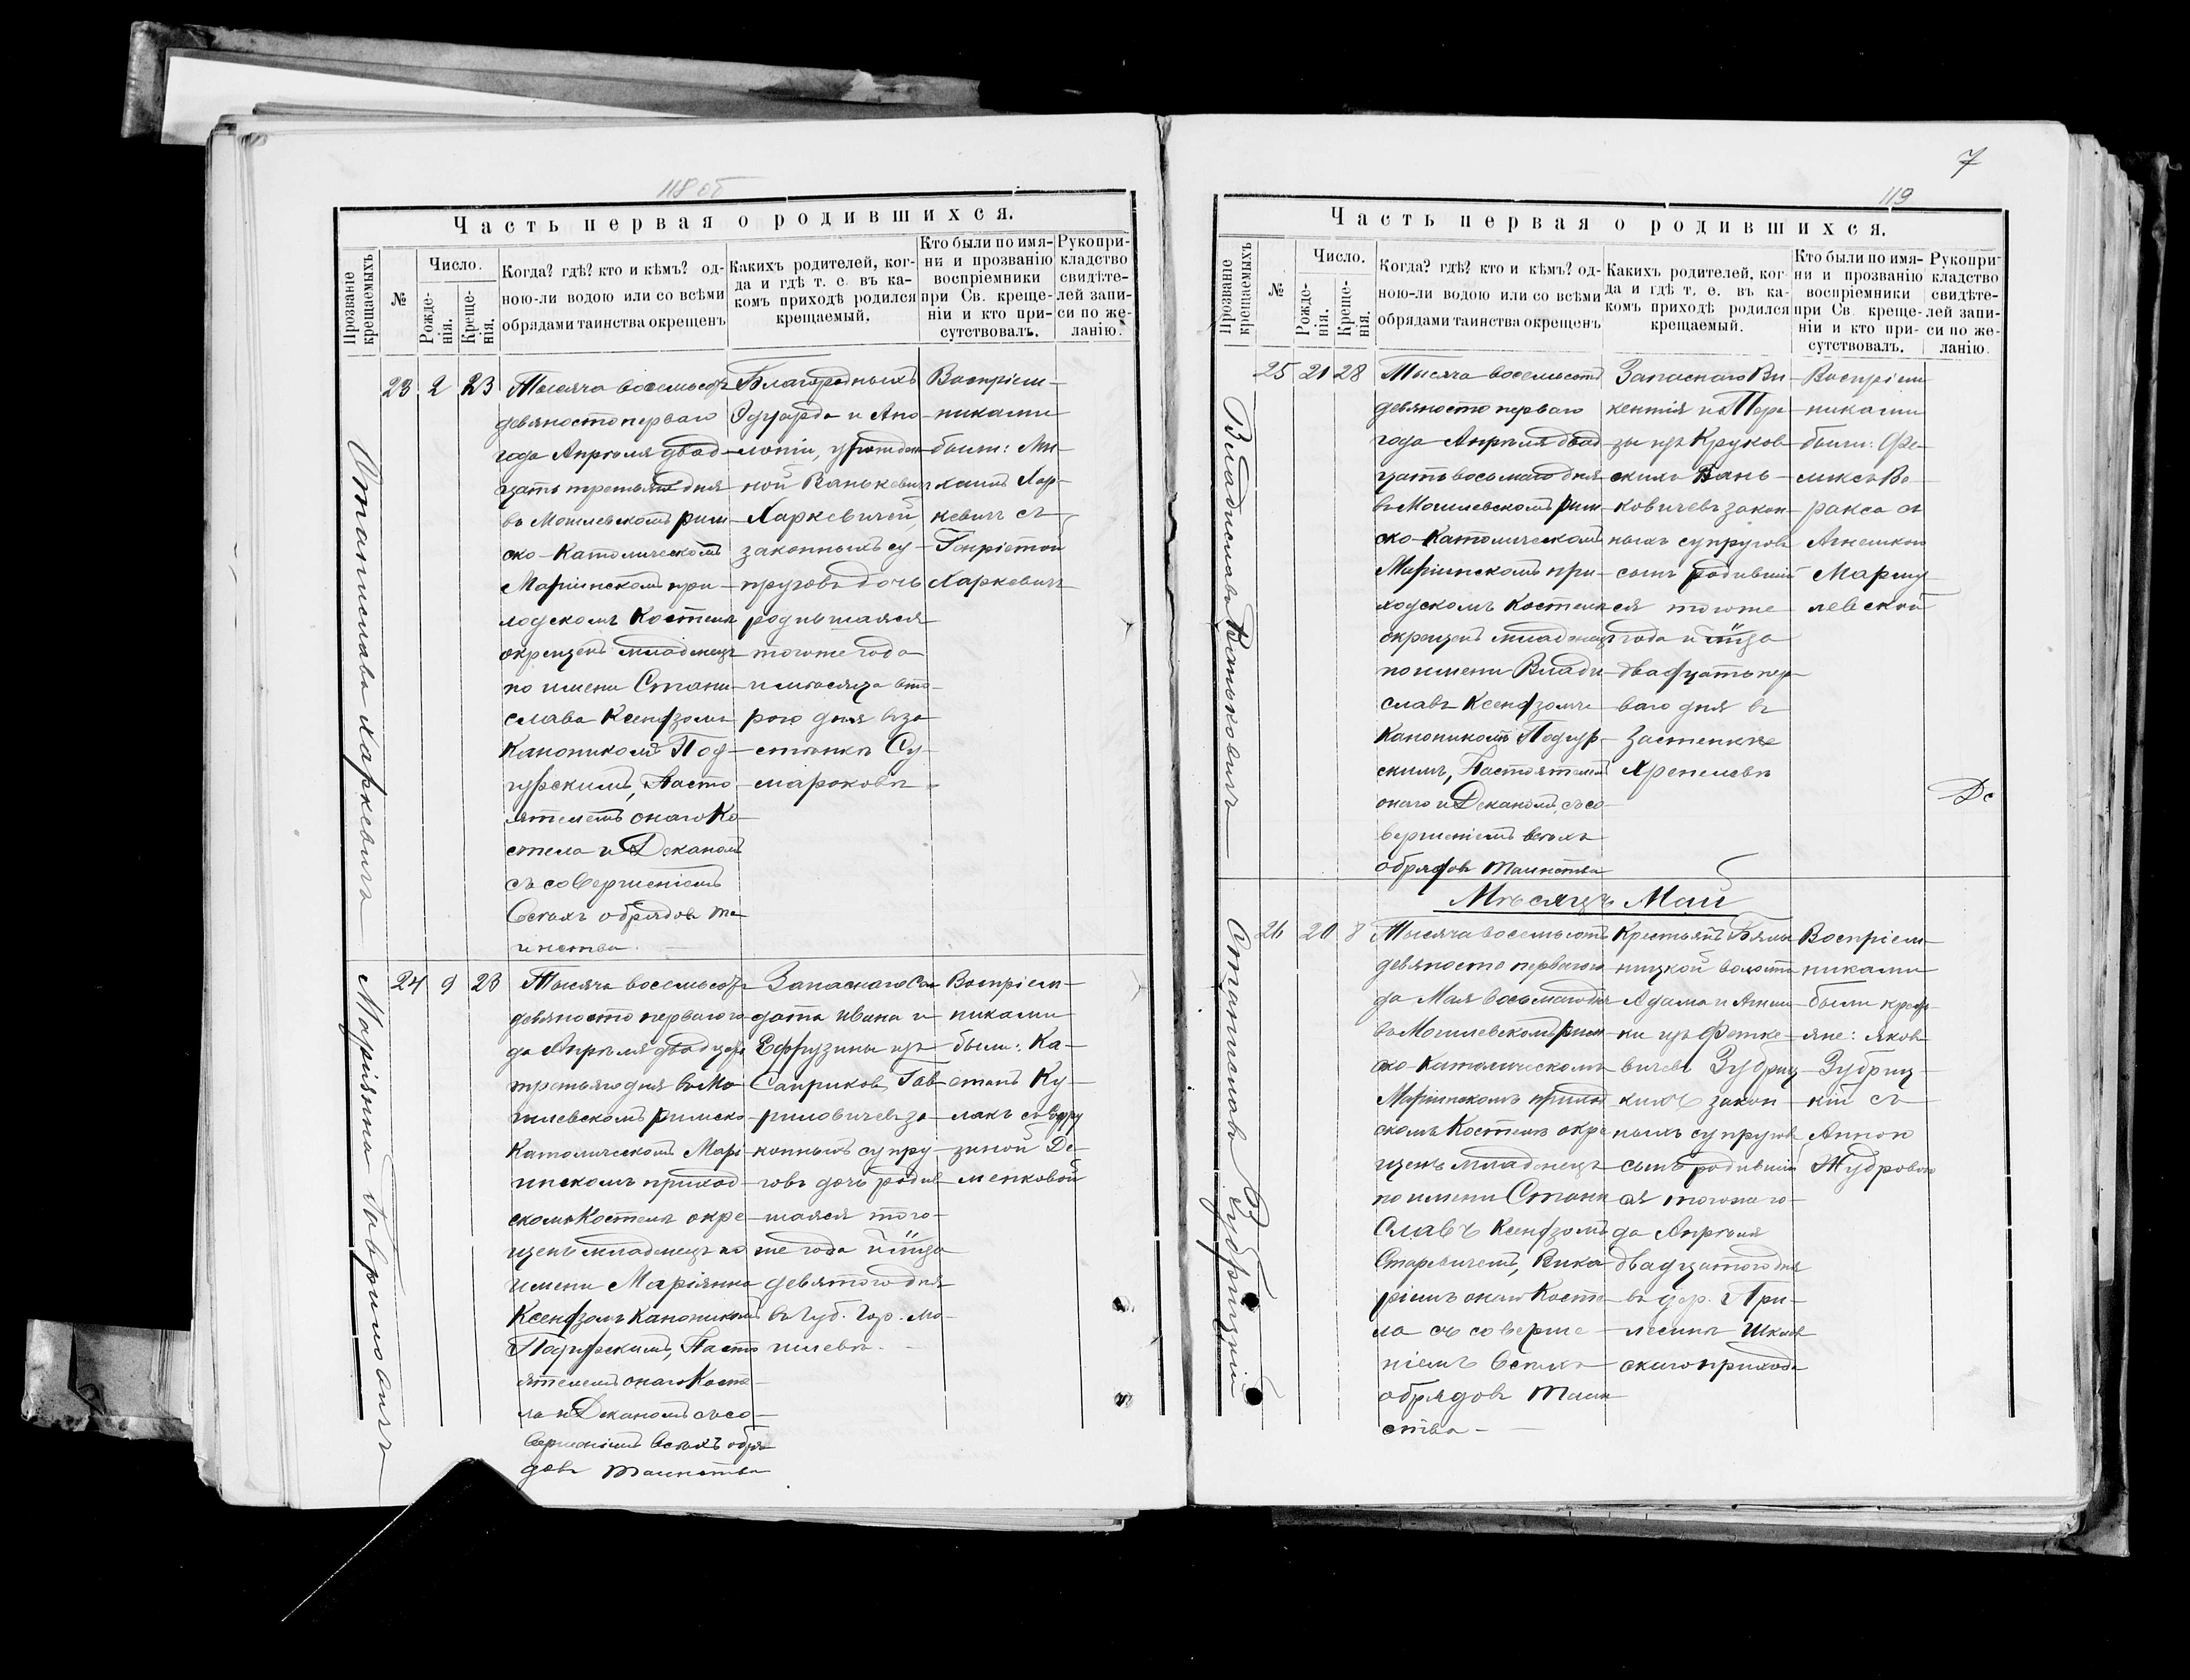 118 об
Часть первая о родившихся.
Прозваніе крещаемыхъ
№
Число.
Рожде-
нія.
Креще-
нія.
Когда? гдѣ? кто и кѣмъ? од-
ною-ли водою или со всѣми
обрядами таинства окрещенъ
Какихъ родителей, ког-
да и гдѣ т. е. въ ка-
комъ приходѣ родился
крещаемый.
Кто были по имя-
ни и прозванію
воспріемники
при Св. креще-
ніи и кто при-
сутствовалъ.
Рукопри-
кладство
свидѣте-
лей запи-
си по же-
ланію.
Станислава Харкевичъ
23 2 23
Тысяча восемьсотъ
девяносто перваго
года Апрѣля двад-
цать третьяго дня
въ Могилевскомъ рим-
ско-Католическомъ
Маріинскомъ при-
ходскомъ Костелѣ
окрещенъ младенецъ
по имени Стани-
слава Ксендзомъ
Каноникомъ Под-
гурскимъ, Насто-
ятелемъ онаго Ко-
стела и Деканомъ
съ совершеніемъ
всѣхъ обрядовъ та-
инства.
Благородныхъ
Эдуарда и Апо-
лоніи, урожден-
ной Ванькевичъ
Харкевичей
законныхъ су-
пруговъ дочь
родившаяся
тогоже года
и мѣсяца вто-
рого дня въ за-
стѣнкѣ Су-
мароковѣ.
Воспріем-
никами
были: Ми-
хаилъ Хар-
кевичъ съ
Генріетой
Харкевичъ
Маріянна Гавриловичъ
24 9 23
Тысяча восемьсотъ
девяносто перваго го-
да Апрѣля двадцать
третьяго дня въ Мо-
гилевскомъ римско
Католическомъ Марі-
инскомъ приход-
скомъ Костелѣ окре-
щенъ младенецъ по
имени Маріянна
Ксендзомъ Каноникомъ
Подгурскимъ, Насто
ятелемъ онаго Косте-
ла и Деканомъ съ со-
вершеніемъ всѣхъ обря-
довъ таинства
Запаснаго Сол
дата Ивана и
Ефрузины изъ
Саприковъ Гав-
риловичевъ за-
конныхъ супру-
говъ дочь родив
шаяся того-
же года и м̃ца
девятого дня
въ Губ. Гор. Мо-
гилевѣ.
Воспріем-
никами
были: Ка-
етанъ Ку-
лакъ съ
зиной Де-
менковой
7
119
Часть первая о родившихся.
Прозваніе крещаемыхъ
№
Число.
Рожде-
нія.
Креще-
нія.
Когда? гдѣ? кто и кѣмъ? од-
ною-ли водою или со всѣми
обрядами таинства окрещенъ
Какихъ родителей, ког-
да и гдѣ т. е. въ ка-
комъ приходѣ родился
крещаемый.
Кто были по имя-
ни и прозванію
воспріемники
при Св. креще-
ніи и кто при-
сутствовалъ.
Рукопри-
кладство
свидѣте-
лей запи-
си по же-
ланію.
Владиславъ Ваньковичъ
25 21 28
Тысяча восемьсотъ
девяносто перваго
года Апрѣля двад
цать восьмаго дня
въ Могилевскомъ рим
ско-Католическомъ
Маріинскомъ при-
ходскомъ Костелѣ
окрещенъ младенецъ
по имени Влади-
славъ Ксендзомъ
Каноникомъ Подгур-
скимъ, Настоятелемъ
онаго и Деканомъ, съ со-
вершеніемъ всѣхъ
обрядовъ таинства
Запаснаго Ви-
кентія и Тере-
зы изъ Круков-
скихъ Вань-
ковичевъ закон-
ныхъ супруговъ
сынъ родившій
ся тогоже
года и м̃ца
двадцать пер-
ваго дня въ
Застенкѣ
Хрепелевѣ
Воспріем
никами
были: Фе-
ликсъ Ве
ракса съ
Агнешкой
Маршу
левской
Де
Мѣсяцъ Май
Станиславъ Зубрицкій
26 20 8
Тысяча восемьсотъ
девяносто перваго го
да Мая восьмаго дня
въ Могилевскомъ рим
ско Католическомъ
Маріинскомъ приход
скомъ Костелѣ окре
щенъ младенецъ
по имени Стани
славъ Ксендзомъ
Старевичемъ, Вика
ріемъ онаго Косте-
ла съ соверше-
ніемъ всѣхъ
обрядовъ таин
ства -
Крестьянъ Бялы
ницкой волости
Адама и Анны
ки изъ Фетке-
вичевъ Зубриц-
кихъ закон-
ныхъ супруговъ
сынъ родившій
ся тогоже го-
да Апрѣля
двадцатого дня
въ дер. При-
лесинѣ Шклов
скаго прихода
Воспріем-
никами
были кресть
яне: Яковъ
Зубриц-
кій съ
Анною
Жудровою